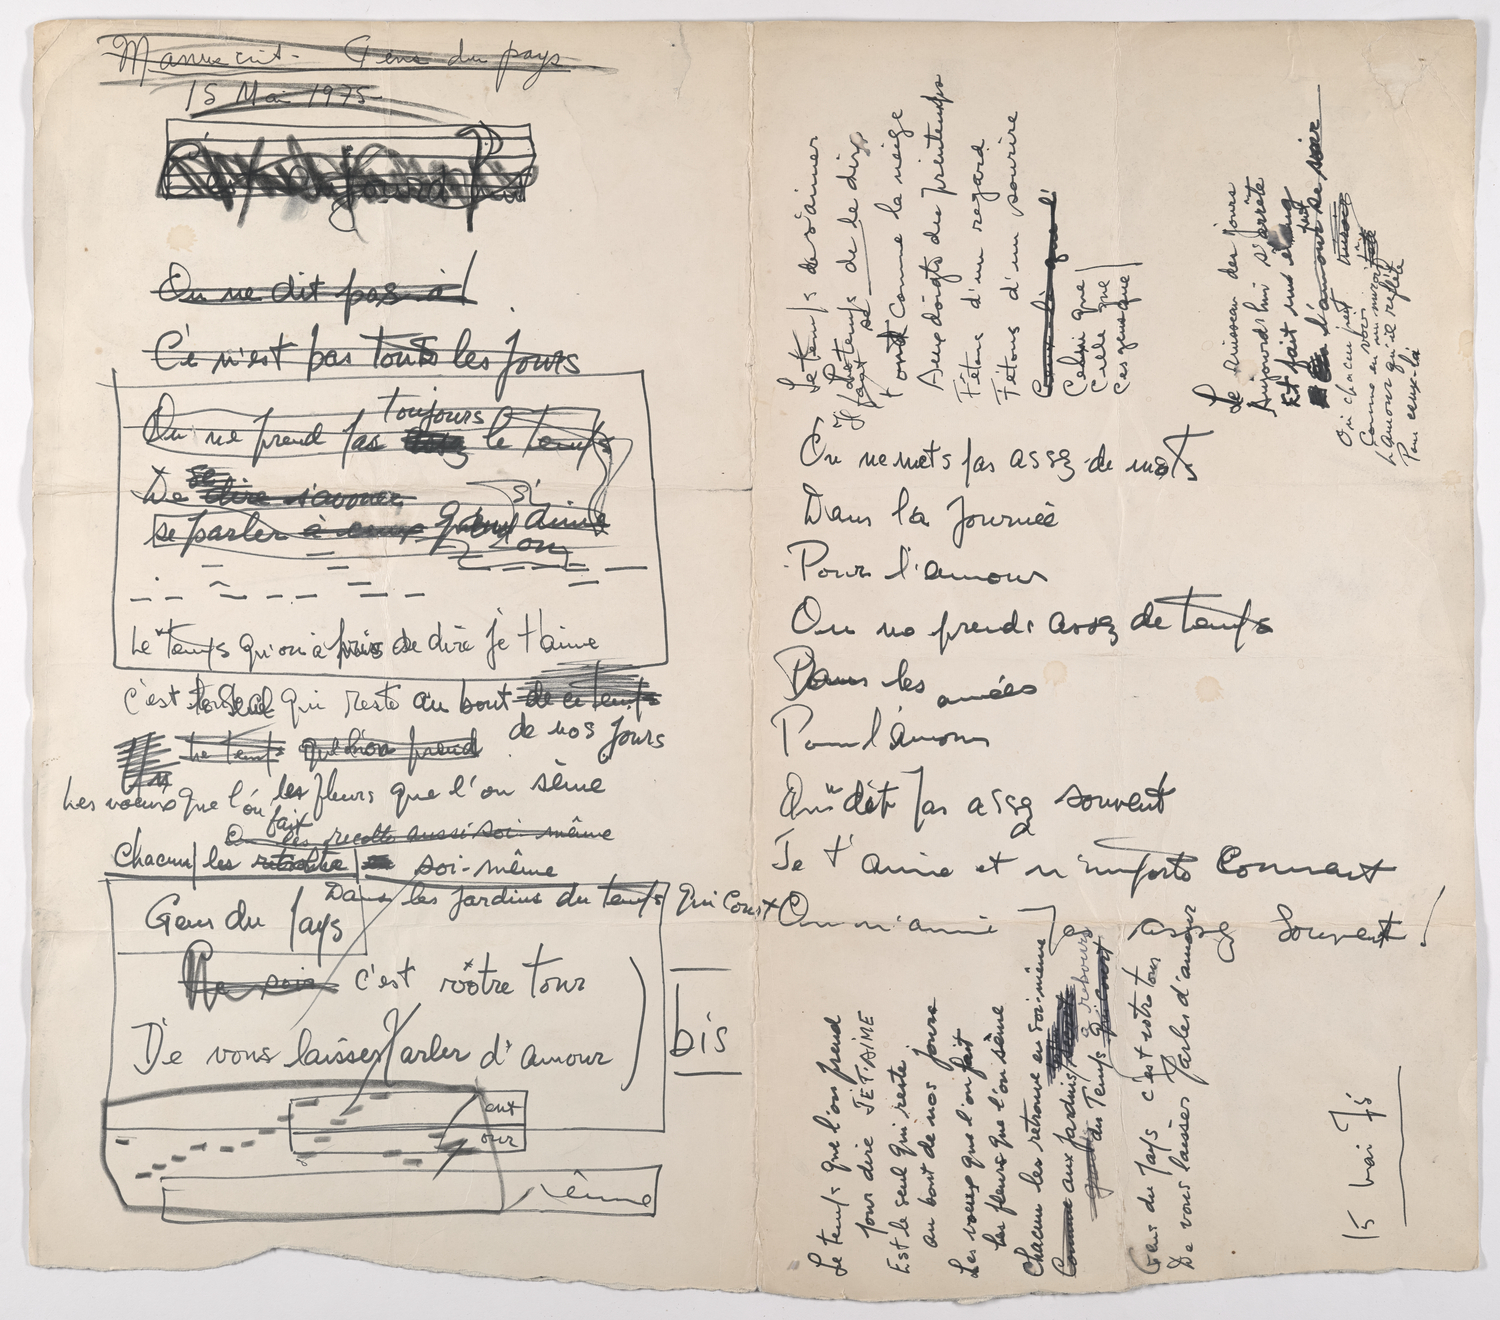 Manuscrit - Gens du pays
15 Mai 1975
On ne dit pas à
Ce n'est pas tous les jours
toujours
On ne prend pas assez le temps
De se dire s'avouer
se parler à ceux qu'on aime
si
on
Le temps qu'on a pris de dire je t'aime
c'est le seul qui reste au bout de ce temps
de nos jours
Le temps que l'on prend
Les voeux que l'on fait les fleurs que l'on sème
On les recolte aussi soi-même
Chacun les récolte soi-même
Dans les jardins du temps qui court
Gens du pays
Ce soir c'est votre tour
De vous laisser parler d'amour
bis
ent
our
ème
Le temps de s'aimer
Il faut le temps de le dire
se
Fond Comme la neige
Aux doigts du printemps
Fêtons d'un regard
Fêtons d'un sourire
Celui que
Celle que
Ces que que
Le ruisseau des jours
Aujourd'hui s'arrête
Et fait un étang
fait
l'amour se
Où chacun peut
Comme en un miroir
voir
L'amour qu'il reflète
Pour ceux-là
On ne mets pas assez de mots
Dans la Journée
Pour l'amour
On no prends assez de temps
Dans les années
Pour l'amour
On dit pas assez souvent
Je t'aime et n'importe Comment
On n'aime pas assez Souvent!
Le temps que l'on prend
pour dire JE T'AIME
Est le seul qui reste
au bout de nos jours
Les voeux que l'on fait
les fleurs que l'on sème
Chacun les retrouve en soi-même
Comme aux jardins
à rebours
du Temps qui court
Gens du Pays c'est votre tour
De vous laisser Parler d'amour
15 mai 75